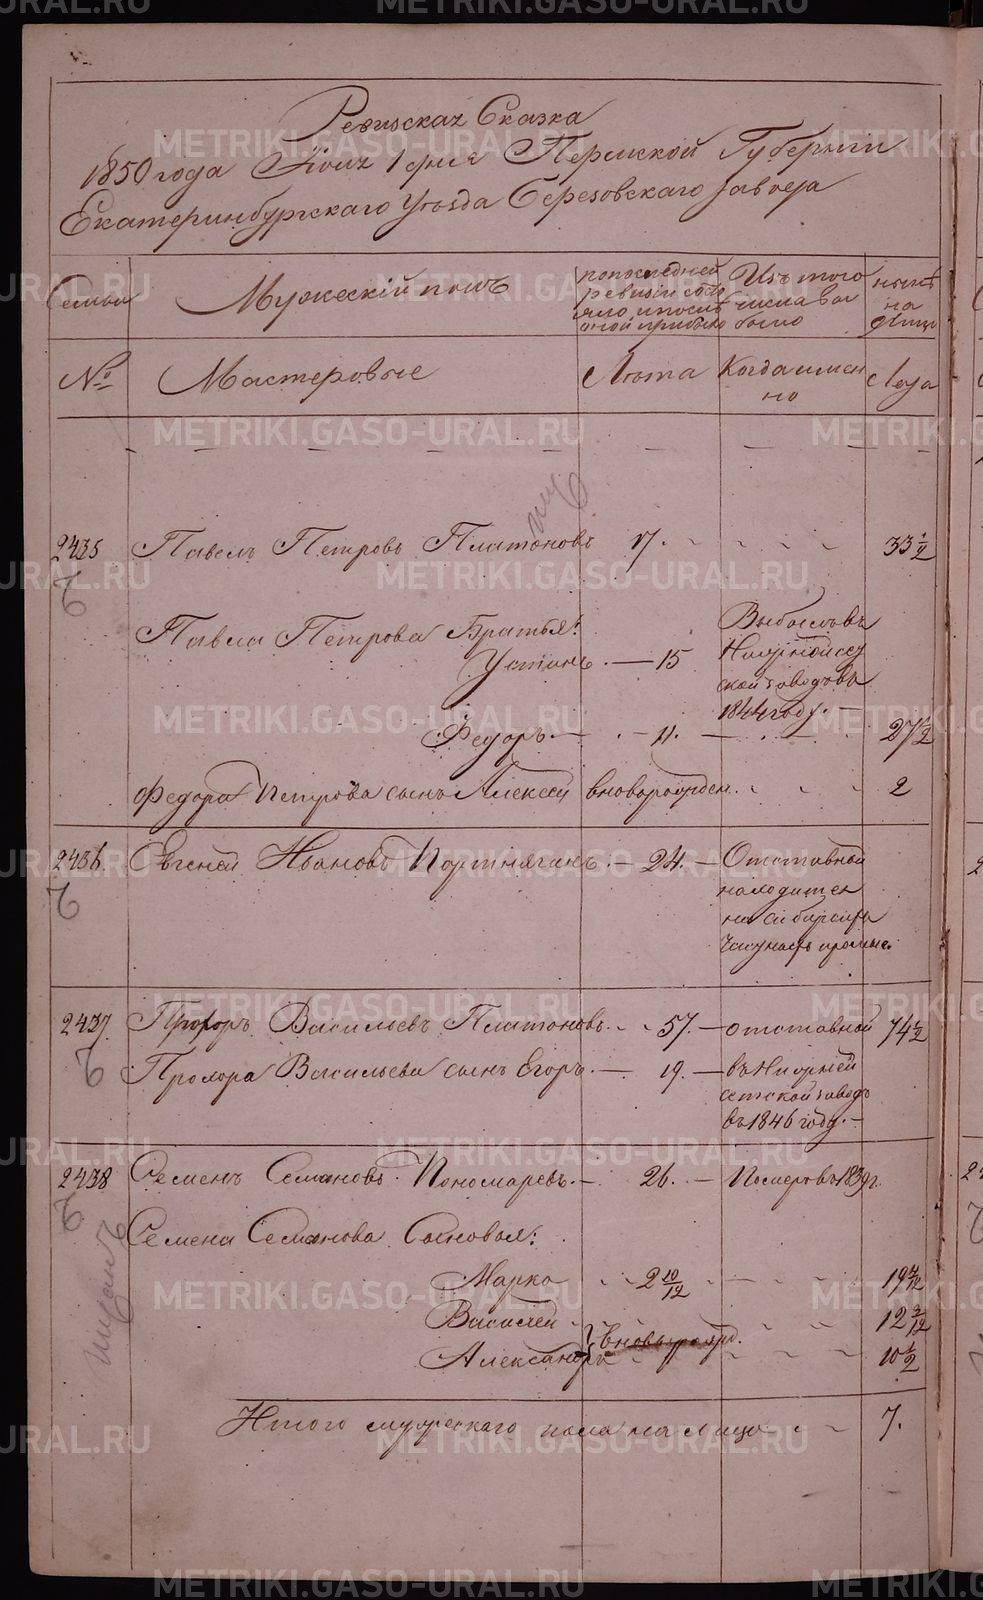 Ревизская Сказка
1850 года Июля 1 дня Пермской Губерніи
Екатеринбургскаго Уѣзда Березовскаго завода
Семьи
Мужескій полъ
по последней ревизіи состояло и после оной прибыло
Изъ того числа выбыло
нынѣ на лицо
№
Мастеровые
Лѣта
Когда именно
Лета
2435 Павелъ Петровъ Платоновъ 17. 33 1/2
Павла Петрова Братья:
Устинъ. — 15 Выбылъ въ
1844 году. —
Федоръ. — 11. — 27 1/2
Федора Петрова сынъ Алексей вновьрожден. 2
2436. Евгеней Ивановъ Портнягинъ. — 24. — Отставной
находится
на сибирскихъ
2437. Прохоръ Василиевъ Платоновъ. 57. — отставной 74 1/2
Прохора Васильева сынъ Егоръ. — 19. — въ Нижней
исетской заводъ
въ 1846 году. —
2438 Семенъ Семеновъ Пономаревъ. — 26. — Померъ въ 1839 г.
Семена Семенова Сыновья:
Марко 2 10/12
Василей
вновьрожд.
Александръ 10 1/2
Итого мужескаго пола на лицо 7.
METRIKI.GASO-URAL.RU